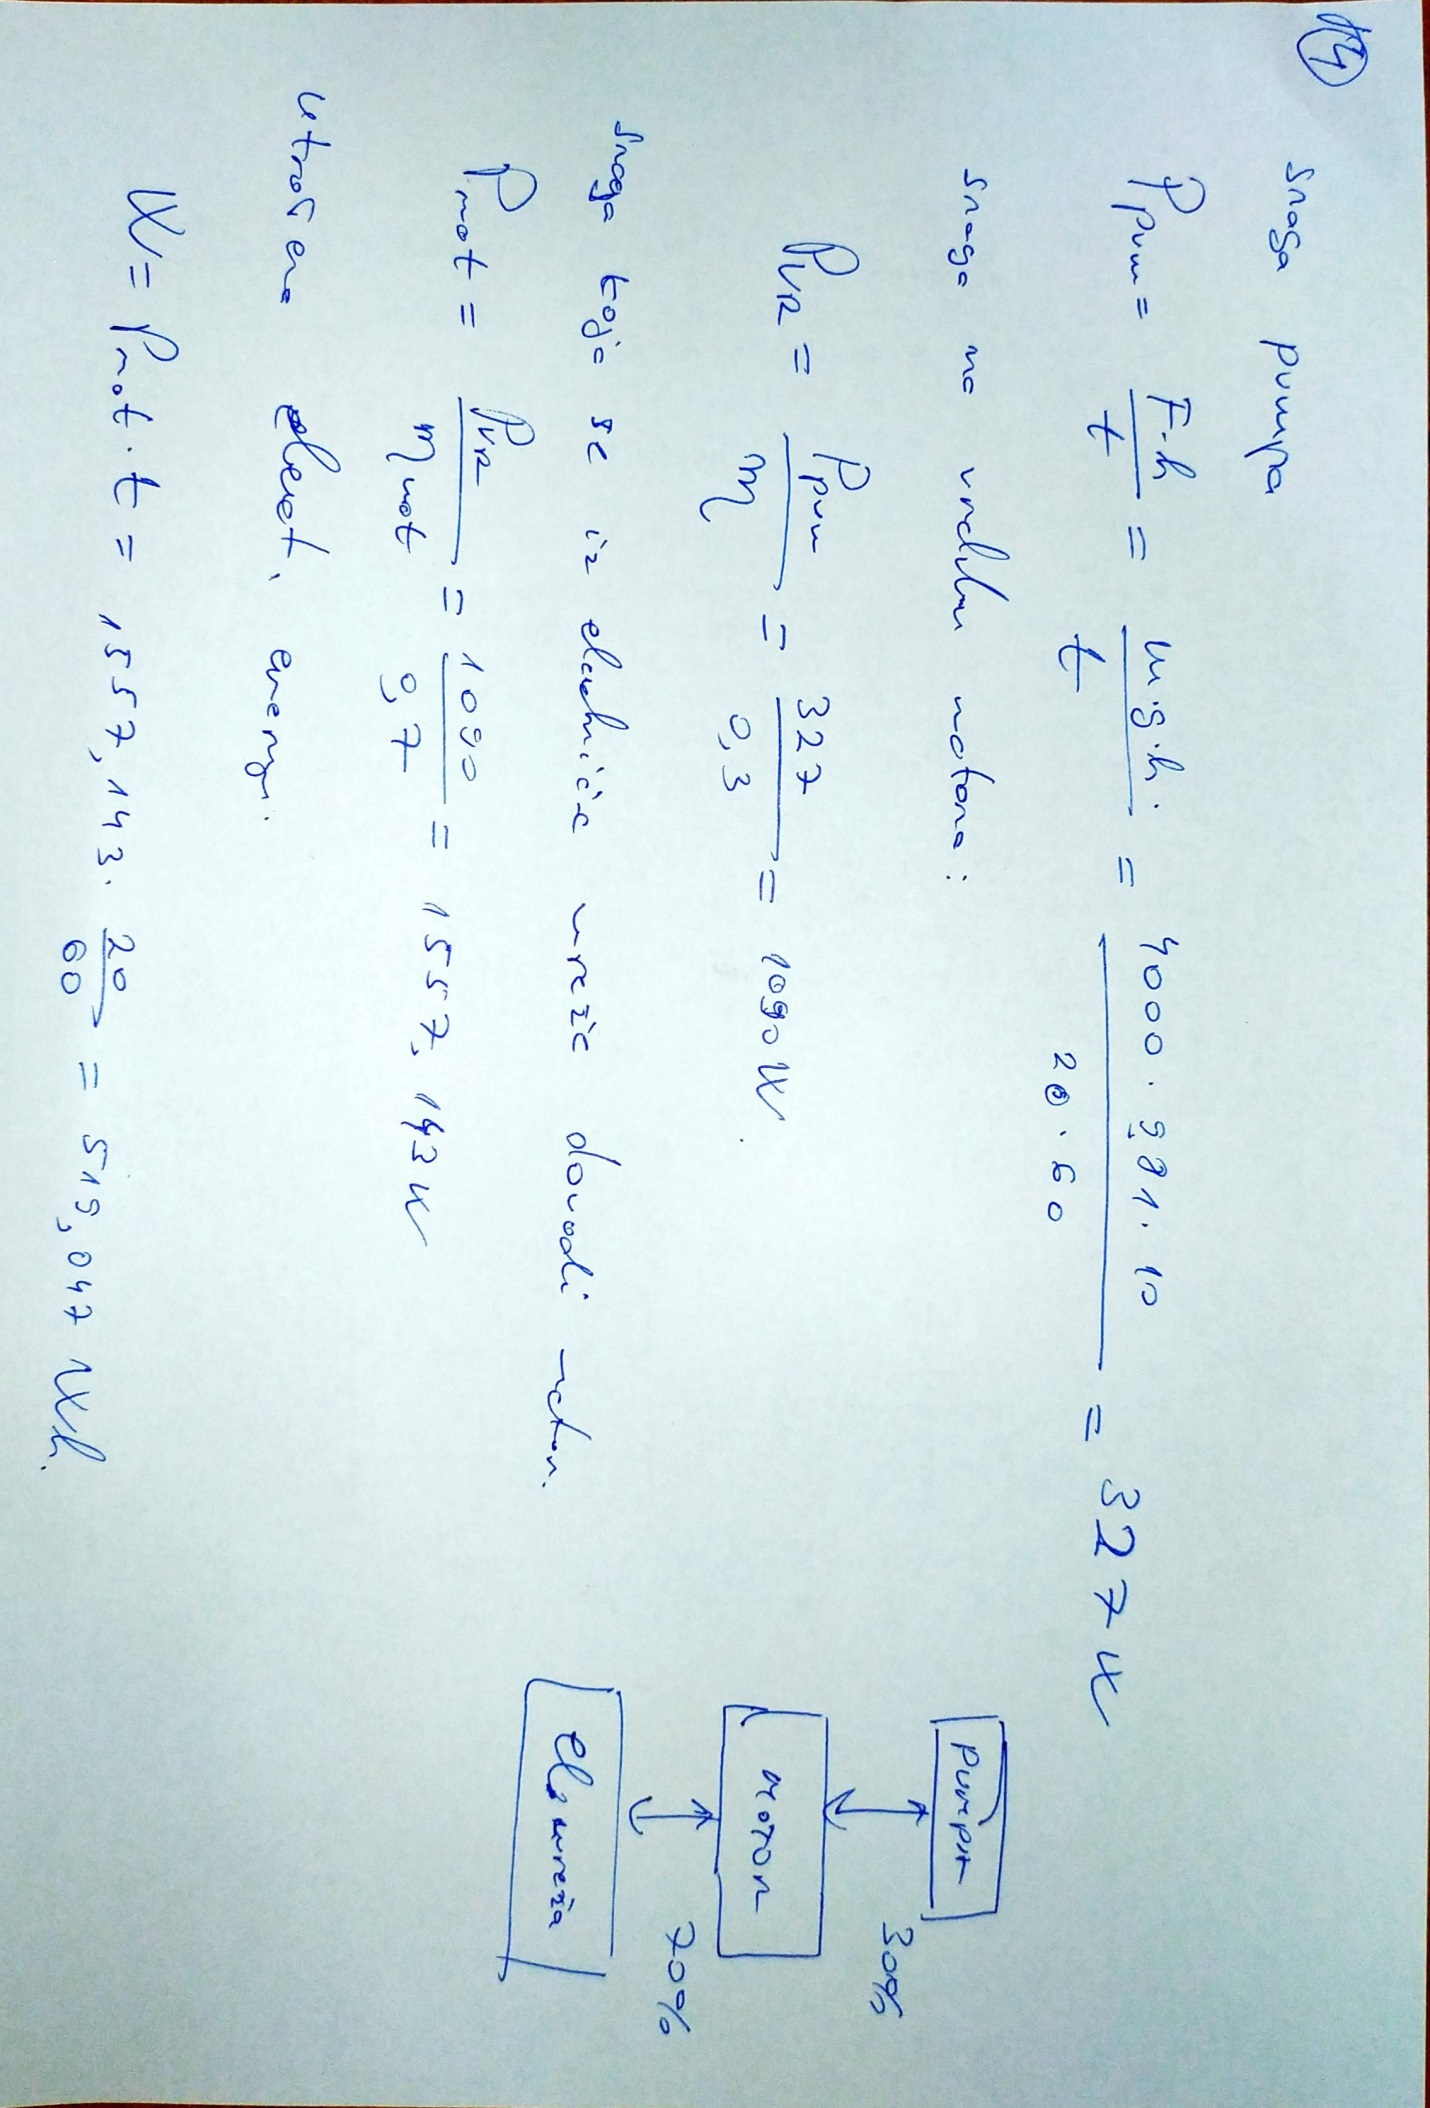 14
snaga pumpa
Ppum = F·h / t = m·g·h / t = 4000 · 9,81 · 10 / 20 · 60 = 327 W
snaga na vratilu motora :
PVR = Ppum / η = 327 / 0,3 = 1090 W
snaga koja se iz električne mreže dovodi motoru.
Pmot = PVR / ηmot = 1090 / 0,7 = 1557,143 W
utrošena elekt. energ.
W = Pmot · t = 1557,143 · 20 / 60 = 519,047 Wh.
PUMPA
30%
MOTOR
70%
El. mreža